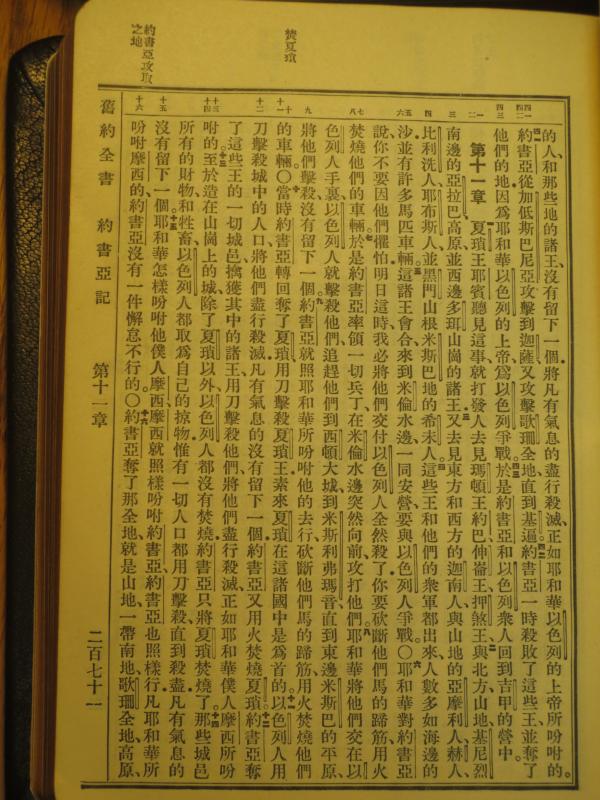 焚夏瑣
約書亞攻取
之地
四一
四二
四三
一
二
三
四
五
六
七
八
九
十
十一
十二
十三
十四
十五
十六
的人和那些地的諸王沒有留下一個將凡有氣息的盡行殺滅正如耶和華以色列的上帝所吩咐的
約書亞從加低斯巴尼亞攻擊到迦薩又攻擊歌珊全地直到基遍約書亞一時殺敗了這些王並奪了
他們的地因爲耶和華以色列的上帝爲以色列爭戰於是約書亞和以色列衆人回到吉甲的營中
第十一章 夏瑣王耶賓聽見這事就打發人去見瑪頓王約巴伸崙王押煞王與北方山地基尼烈
南邊的亞拉巴高原並西邊多珥山崗的諸王又去見東方和西方的迦南人與山地的亞摩利人赫人
比利洗人耶布斯人並黑門山根米斯巴地的希未人這些王和他們的衆軍都出來人數多如海邊的
沙並有許多馬匹車輛這諸王會合來到米倫水邊一同安營要與以色列人爭戰〇耶和華對約書亞
說你不要因他們懼怕明日這時我必將他們交付以色列人全然殺了你要砍斷他們馬的蹄筋用火
焚燒他們的車輛於是約書亞率領一切兵丁在米倫水邊突然向前攻打他們耶和華將他們交在以
色列人手裏以色列人就擊殺他們追趕他們到西頓大城到米斯利弗瑪音直到東邊米斯巴的平原
將他們擊殺沒有留下一個約書亞就照耶和華所吩咐他的去行砍斷他們馬的蹄筋用火焚燒他們
的車輛〇當時約書亞轉回奪了夏瑣用刀擊殺夏瑣王素來夏瑣在這諸國中是爲首的以色列人用
刀擊殺城中的人口將他們盡行殺滅凡有氣息的沒有留下一個約書亞又用火焚燒夏瑣約書亞奪
了這些王的一切城邑擒獲其中的諸王用刀擊殺他們將他們盡行殺滅正如耶和華僕人摩西所吩
咐的至於造在山崗上的城除了夏瑣以外以色列人都沒有焚燒約書亞只將夏瑣焚燒了那些城邑
所有的財物和牲畜以色列人都取爲自己的掠物惟有一切人口都用刀擊殺直到殺盡凡有氣息的
沒有留下一個耶和華怎樣吩咐他僕人摩西摩西就照樣吩咐約書亞約書亞也照樣行凡耶和華所
吩咐摩西的約書亞沒有一件懈怠不行的〇約書亞奪了那全地就是山地一帶南地歌珊全地高原
舊約全書 約書亞記 第十一章 二百七十一